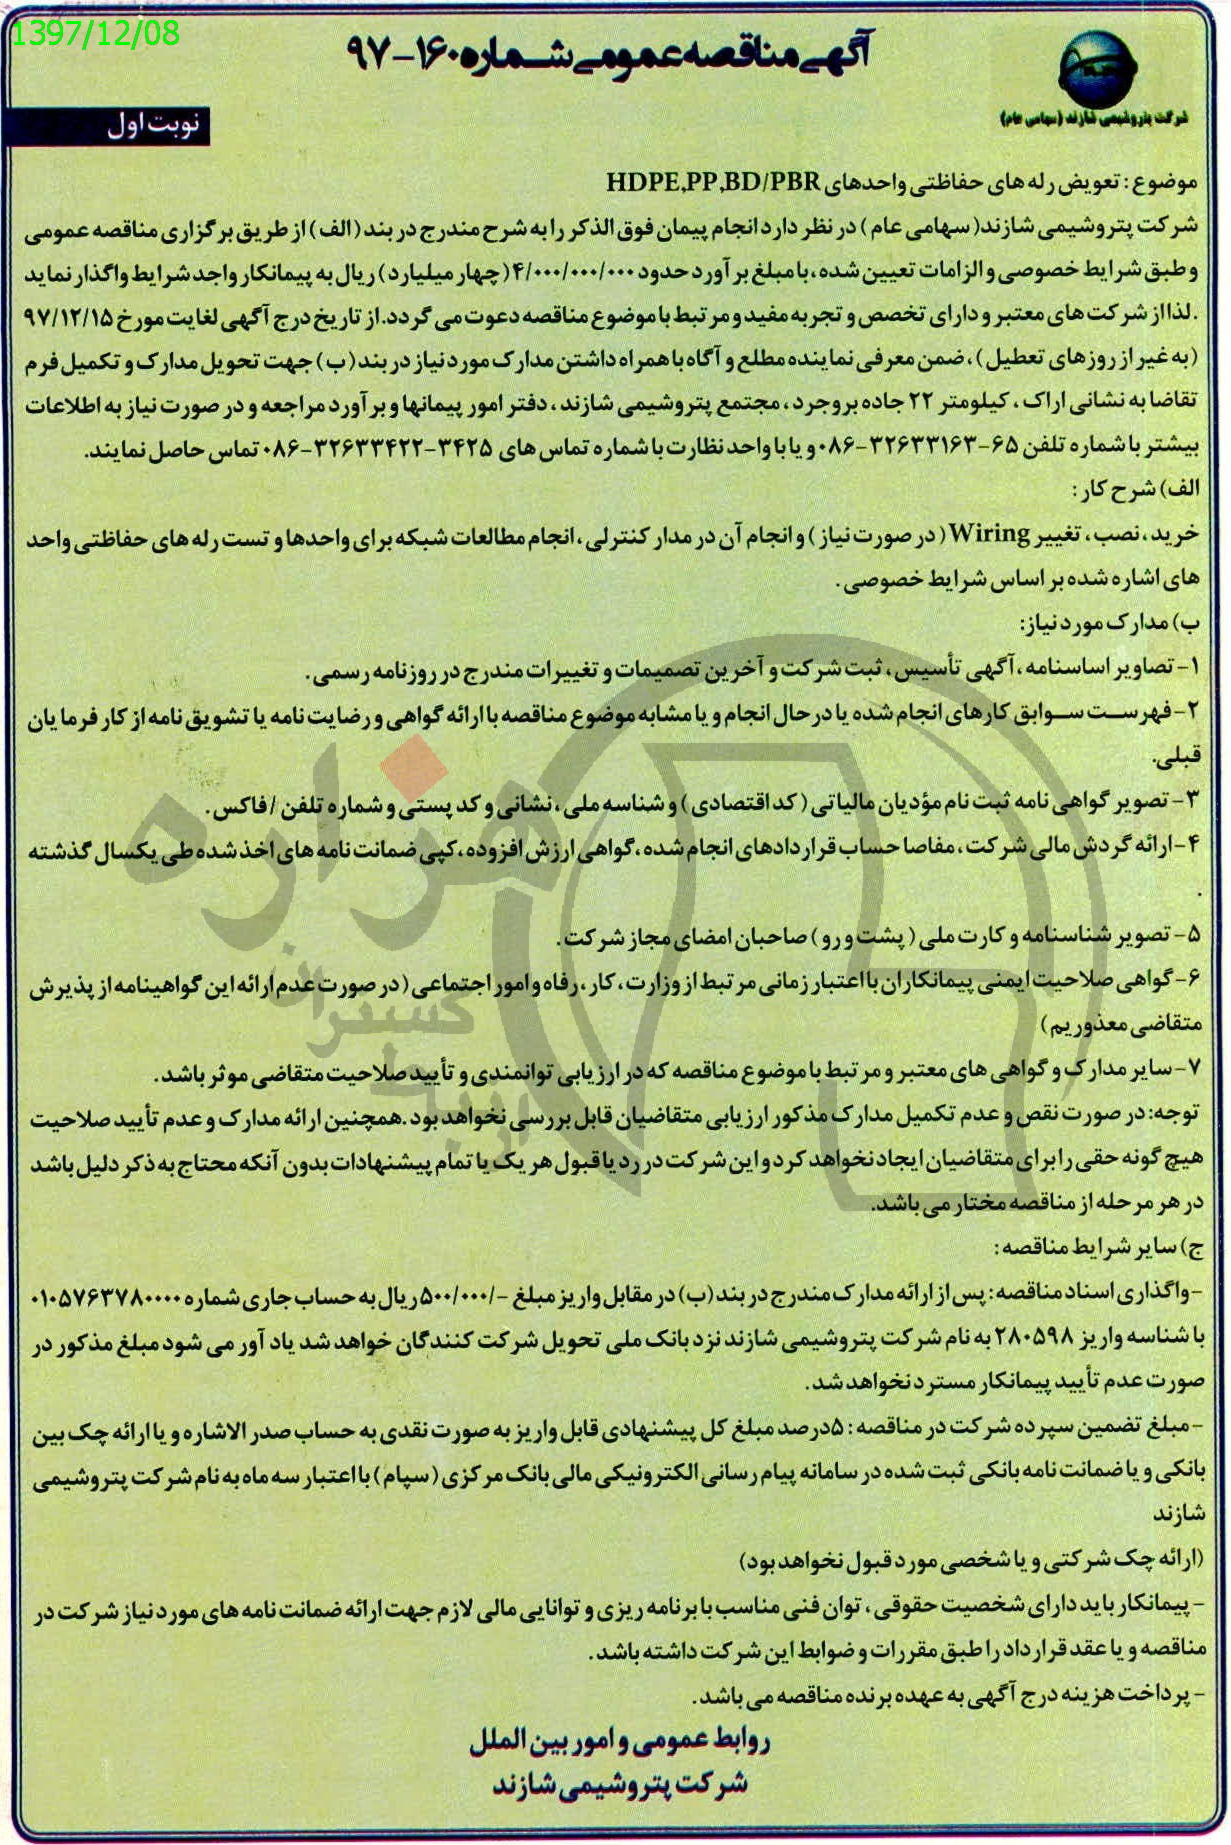 1397/12/08
آگهی مناقصه عمومی شماره ۱۶۰-۹۷
شرکت پتروشیمی شازند (سهامی عام)
نوبت اول
موضوع : تعویض رله های حفاظتی واحدهای HDPE,PP,BD/PBR
شرکت پتروشیمی شازند( سهامی عام ) در نظر دارد انجام پیمان فوق الذکر را به شرح مندرج در بند ( الف ) از طریق برگزاری مناقصه عمومی
و طبق شرایط خصوصی و الزامات تعیین شده ، با مبلغ برآورد حدود ۴/۰۰۰/۰۰۰/۰۰۰ ( چهار میلیارد ) ریال به پیمانکار واجد شرایط واگذار نماید
. لذا از شرکت های معتبر و دارای تخصص و تجربه مفید و مرتبط با موضوع مناقصه دعوت می گردد. از تاریخ درج آگهی لغایت مورخ ۹۷/۱۲/۱۵
(به غیر از روزهای تعطیل ) ، ضمن معرفی نماینده مطلع و آگاه با همراه داشتن مدارک مورد نیاز در بند ( ب ) جهت تحویل مدارک و تکمیل فرم
تقاضا به نشانی اراک ، کیلومتر ۲۲ جاده بروجرد ، مجتمع پتروشیمی شازند ، دفتر امور پیمانها و برآورد مراجعه و در صورت نیاز به اطلاعات
بیشتر با شماره تلفن ۶۵-۳۲۶۳۳۱۶۳-۰۸۶ و یا با واحد نظارت با شماره تماس های ۳۴۲۵-۳۲۶۳۳۴۲۲-۰۸۶ تماس حاصل نمایند.
الف) شرح کار :
خرید ، نصب ، تغییر Wiring ( در صورت نیاز ) و انجام آن در مدار کنترلی ، انجام مطالعات شبکه برای واحدها و تست رله های حفاظتی واحد
های اشاره شده بر اساس شرایط خصوصی .
ب) مدارک مورد نیاز:
۱- تصاویر اساسنامه ، آگهی تأسیس ، ثبت شرکت و آخرین تصمیمات و تغییرات مندرج در روزنامه رسمی.
۲- فهرست سوابق کارهای انجام شده یا در حال انجام و یا مشابه موضوع مناقصه با ارائه گواهی و رضایت نامه یا تشویق نامه از کارفرمایان
قبلی.
۳- تصویر گواهی نامه ثبت نام مؤدیان مالیاتی ( کد اقتصادی ) و شناسه ملی ، نشانی و کد پستی و شماره تلفن / فاکس .
۴- ارائه گردش مالی شرکت ، مفاصا حساب قراردادهای انجام شده ، گواهی ارزش افزوده ، کپی ضمانت نامه های اخذ شده طی یکسال گذشته
.
۵- تصویر شناسنامه و کارت ملی ( پشت و رو ) صاحبان امضای مجاز شرکت .
۶- گواهی صلاحیت ایمنی پیمانکاران با اعتبار زمانی مرتبط از وزارت ، کار ، رفاه و امور اجتماعی ( در صورت عدم ارائه این گواهینامه از پذیرش
متقاضی معذوریم )
۷- سایر مدارک و گواهی های معتبر و مرتبط با موضوع مناقصه که در ارزیابی توانمندی و تأیید صلاحیت متقاضی موثر باشد .
توجه: در صورت نقص و عدم تکمیل مدارک مذکور ارزیابی متقاضیان قابل بررسی نخواهد بود . همچنین ارائه مدارک و عدم تأیید صلاحیت
هیچ گونه حقی را برای متقاضیان ایجاد نخواهد کرد و این شرکت در رد یا قبول هر یک یا تمام پیشنهادات بدون آنکه محتاج به ذکر دلیل باشد
در هر مرحله از مناقصه مختار می باشد.
ج) سایر شرایط مناقصه :
- واگذاری اسناد مناقصه : پس از ارائه مدارک مندرج در بند ( ب ) در مقابل واریز مبلغ -/۵۰۰/۰۰۰ ریال به حساب جاری شماره ۰۱۰۵۷۶۳۷۸۰۰۰۰
با شناسه واریز ۲۸۰۵۹۸ به نام شرکت پتروشیمی شازند نزد بانک ملی تحویل شرکت کنندگان خواهد شد یاد آور می شود مبلغ مذکور در
صورت عدم تأیید پیمانکار مسترد نخواهد شد .
- مبلغ تضمین سپرده شرکت در مناقصه : ۵درصد مبلغ کل پیشنهادی قابل واریز به صورت نقدی به حساب صدر الاشاره و یا ارائه چک بین
بانکی و یا ضمانت نامه بانکی ثبت شده در سامانه پیام رسانی الکترونیکی مالی بانک مرکزی ( سپام ) با اعتبار سه ماه به نام شرکت پتروشیمی
شازند
(ارائه چک شرکتی و یا شخصی مورد قبول نخواهد بود)
- پیمانکار باید دارای شخصیت حقوقی ، توان فنی مناسب با برنامه ریزی و توانایی مالی لازم جهت ارائه ضمانت نامه های مورد نیاز شرکت در
مناقصه و یا عقد قرارداد را طبق مقررات و ضوابط این شرکت داشته باشد .
- پرداخت هزینه درج آگهی به عهده برنده مناقصه می باشد .
روابط عمومی و امور بین الملل
شرکت پتروشیمی شازند
هزاره